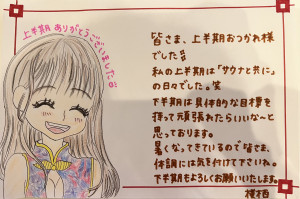 上半期ありがとうございました
皆さま、上半期おつかれ様
でした
私の上半期は「サウナと共に」
の日々でした。笑
下半期は具体的な目標を
持って頑張れたらいいな〜と
思っております。
暑くなってきているので皆さま、
体調には気を付けて下さいね。
下半期もよろしくお願いいたします。